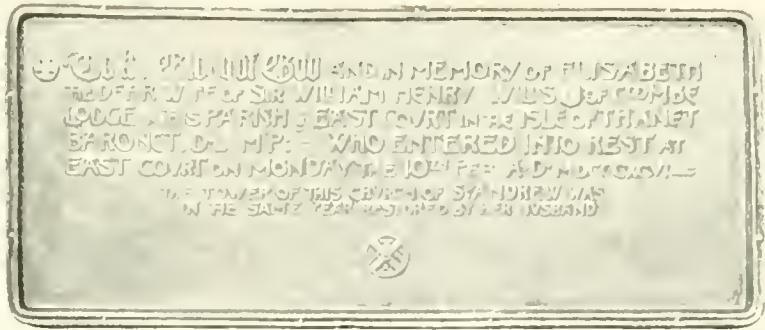 AND IN MEMORY OF ELISABETH
THE DEAR WIFE OF SIR WILLIAM HENRY WILLS OF COOMBE
LODGE IN THIS PARISH & EAST COURT IN THE ISLE OF THANET
BARONET. D.L. M.P: - WHO ENTERED INTO REST AT
EAST COURT ON MONDAY THE 10TH FEB A.D.
THE TOWER OF THIS CHURCH OF ST ANDREW WAS
IN THE SAME YEAR RESTORED BY HER HUSBAND